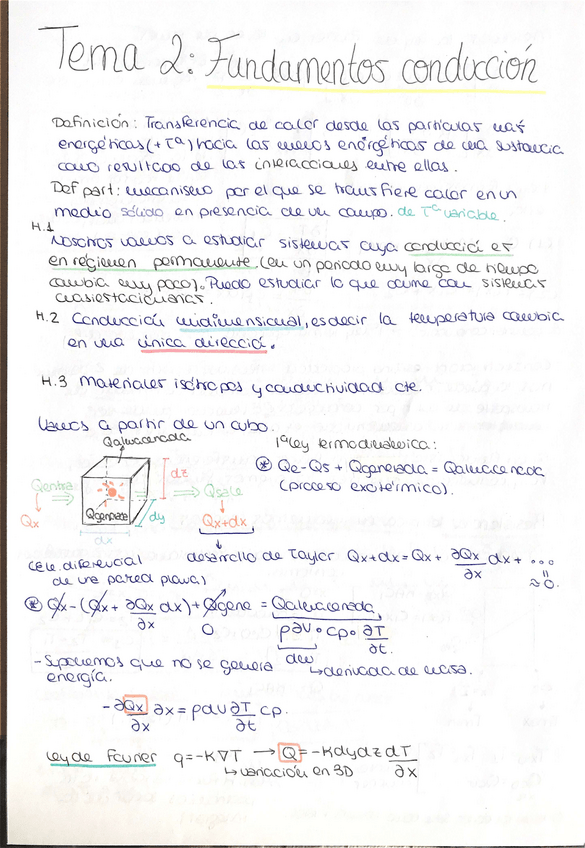 Tema 2: Fundamentos conducción
Definición: Transferencia de calor desde las partículas más
energéticas (+ Tª) hacia las menos energéticas de una sustancia
como resultado de las interacciones entre ellas.
Def part: mecanismo por el que se transfiere calor en un
medio sólido en presencia de un campo. de Tª variable.
H.1
Nosotros vamos a estudiar sistemas cuya conducció es
en régimen permanente. (en un periodo muy largo de tiempo
cambia muy poco). Puedo estudiar lo que ocurre con sistemas
cuasiestacionarios.
H.2 Conducción unidimensional, es decir la temperatura cambia
en una única direcció.
H.3 Materiales isótropos y conductividad cte.
Vamos a partir de un cubo.
Qalmacenada
1ª Ley termodinámica:
Qentra
dz
Qsale
⊛ Qe - Qs + Qgenerada = Qalmacenada
(proceso exotérmico).
Qx
Qgenerada
dy
Qx+dx
dx
(Ele. diferencial
de una pared plana)
desarrollo de Taylor Qx+dx = Qx + ∂Qx/∂x dx + ...
≈ 0.
⊛ Qx - (Qx + ∂Qx/∂x dx) + Qgene = Qalmacenada
0
ρ∂V · cp · ∂T/∂t.
dm
↳ derivada de masa.
- Suponemos que no se genera
energía.
- ∂Qx/∂x ∂x = ρdv ∂T/∂t cp.
Ley de Fourier q = -K∇T → Q = -Kdydz dT/∂x
↳ variación en 3D